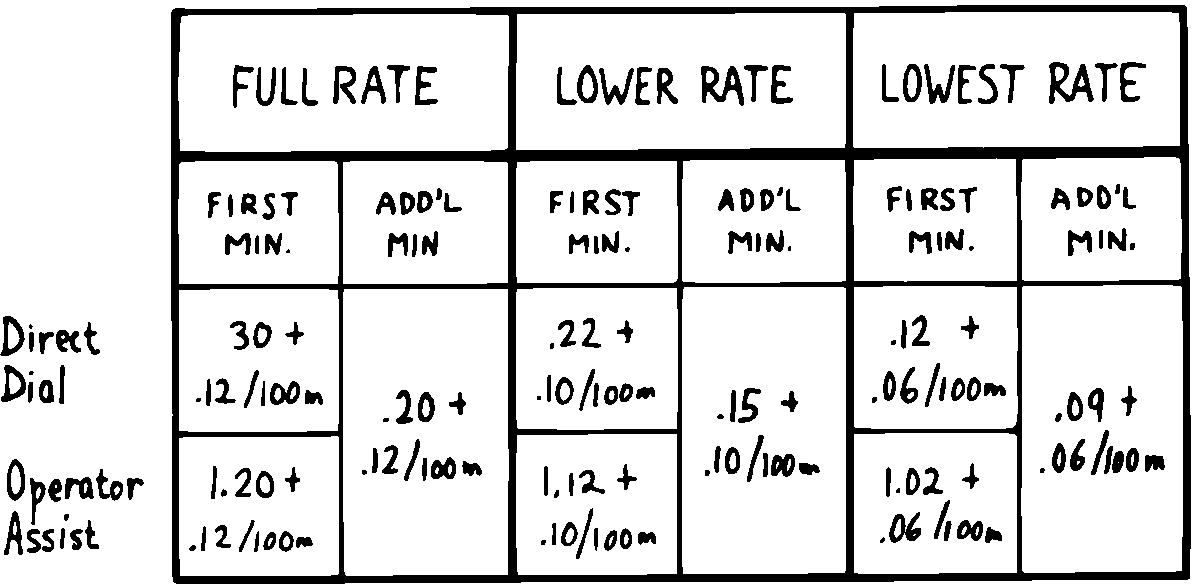 FULL RATE
LOWER RATE
LOWEST RATE
FIRST
MIN.
ADD'L
MIN
FIRST
MIN.
ADD'L
MIN.
FIRST
MIN.
ADD'L
MIN.
Direct
Dial
30 +
.12/100m
.20 +
.12/100m
.22 +
.10/100m
.15 +
.10/100m
.12 +
.06/100m
.09 +
.06/100m
Operator
Assist
1.20 +
.12/100m
1.12 +
.10/100m
1.02 +
.06/100m